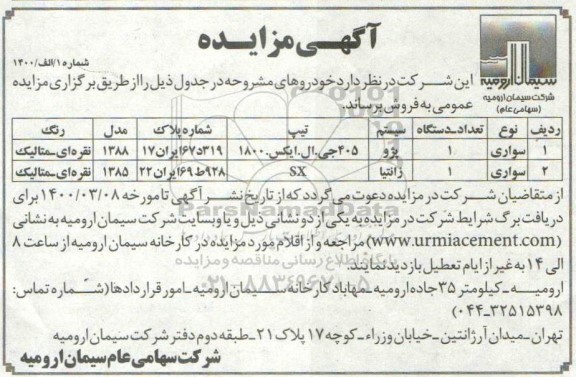 آگهی مزایده
شماره ۱/الف/۱۴۰۰
سیمان ارومیه
شرکت سیمان ارومیه
(سهامی عام)
این شرکت در نظر دارد خودروهای مشروحه در جدول ذیل را از طریق برگزاری مزایده
عمومی به فروش برساند.
ردیف نوع تعداد_دستگاه سیستم تیپ شماره پلاک مدل رنگ
۱ سواری ۱ پژو ۴۰۵جی.ال.ایکس.۱۸۰۰ ۳۱۹د۶۷ایران۱۷ ۱۳۸۸ نقره‌ای_متالیک
۲ سواری ۱ زانتیا SX ۹۲۸ط۶۹ایران۲۲ ۱۳۸۵ نقره‌ای_متالیک
از متقاضیان شرکت در مزایده دعوت می‌گردد که از تاریخ نشر آگهی تا مورخه ۱۴۰۰/۰۳/۰۸ برای
دریافت برگ شرایط شرکت در مزایده به یکی از دو نشانی ذیل و یا وبسایت شرکت سیمان ارومیه به نشانی
(www.urmiacement.com) مراجعه و از اقلام مورد مزایده در کارخانه سیمان ارومیه از ساعت ۸
الی ۱۴ به غیر از ایام تعطیل بازدید نمایند.
ارومیه_کیلومتر ۳۵ جاده ارومیه_مهاباد کارخانه سیمان ارومیه_امور قراردادها (شماره تماس:
۳۲۵۱۵۳۹۸_۰۴۴)
تهران_میدان آرژانتین_خیابان وزراء_کوچه ۱۷ پلاک ۲۱_طبقه دوم دفتر شرکت سیمان ارومیه
شرکت سهامی عام سیمان ارومیه